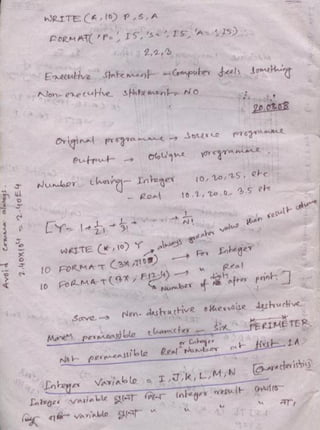 WRITE (*, 10) P, S, A
FORMAT( 'P=', I5, 'S=', I5, 'A=', I5)
2,2,3
Executive Statement → Computer feels something
Non-executive statement → NO
20.02.08
Original programme → Source programme
Output → Oblique programme
Number — Integer 10, 20, 25, etc
— Real 10.2, 20.0, 3.5 etc
[Y= 1 + 1/2! + 1/3! + 1/N!
WRITE (*, 10) Y → always greater value than result
10 FORMAT (3X, ) → For Integer
10 FORMAT ( 3X, F12.4) → " Real
Number of after print. ]
Save → Non destructive otherwise destructive
permeassible character — Six PERIMETER
Not permeassible Real or Integer Number at first 1A
Integer Variable = I, J, K, L, M, N (Characteristic)
Integer variable Integer result
variable " " "
Avoid comma always.
2.40X10^4 = 2.40E4